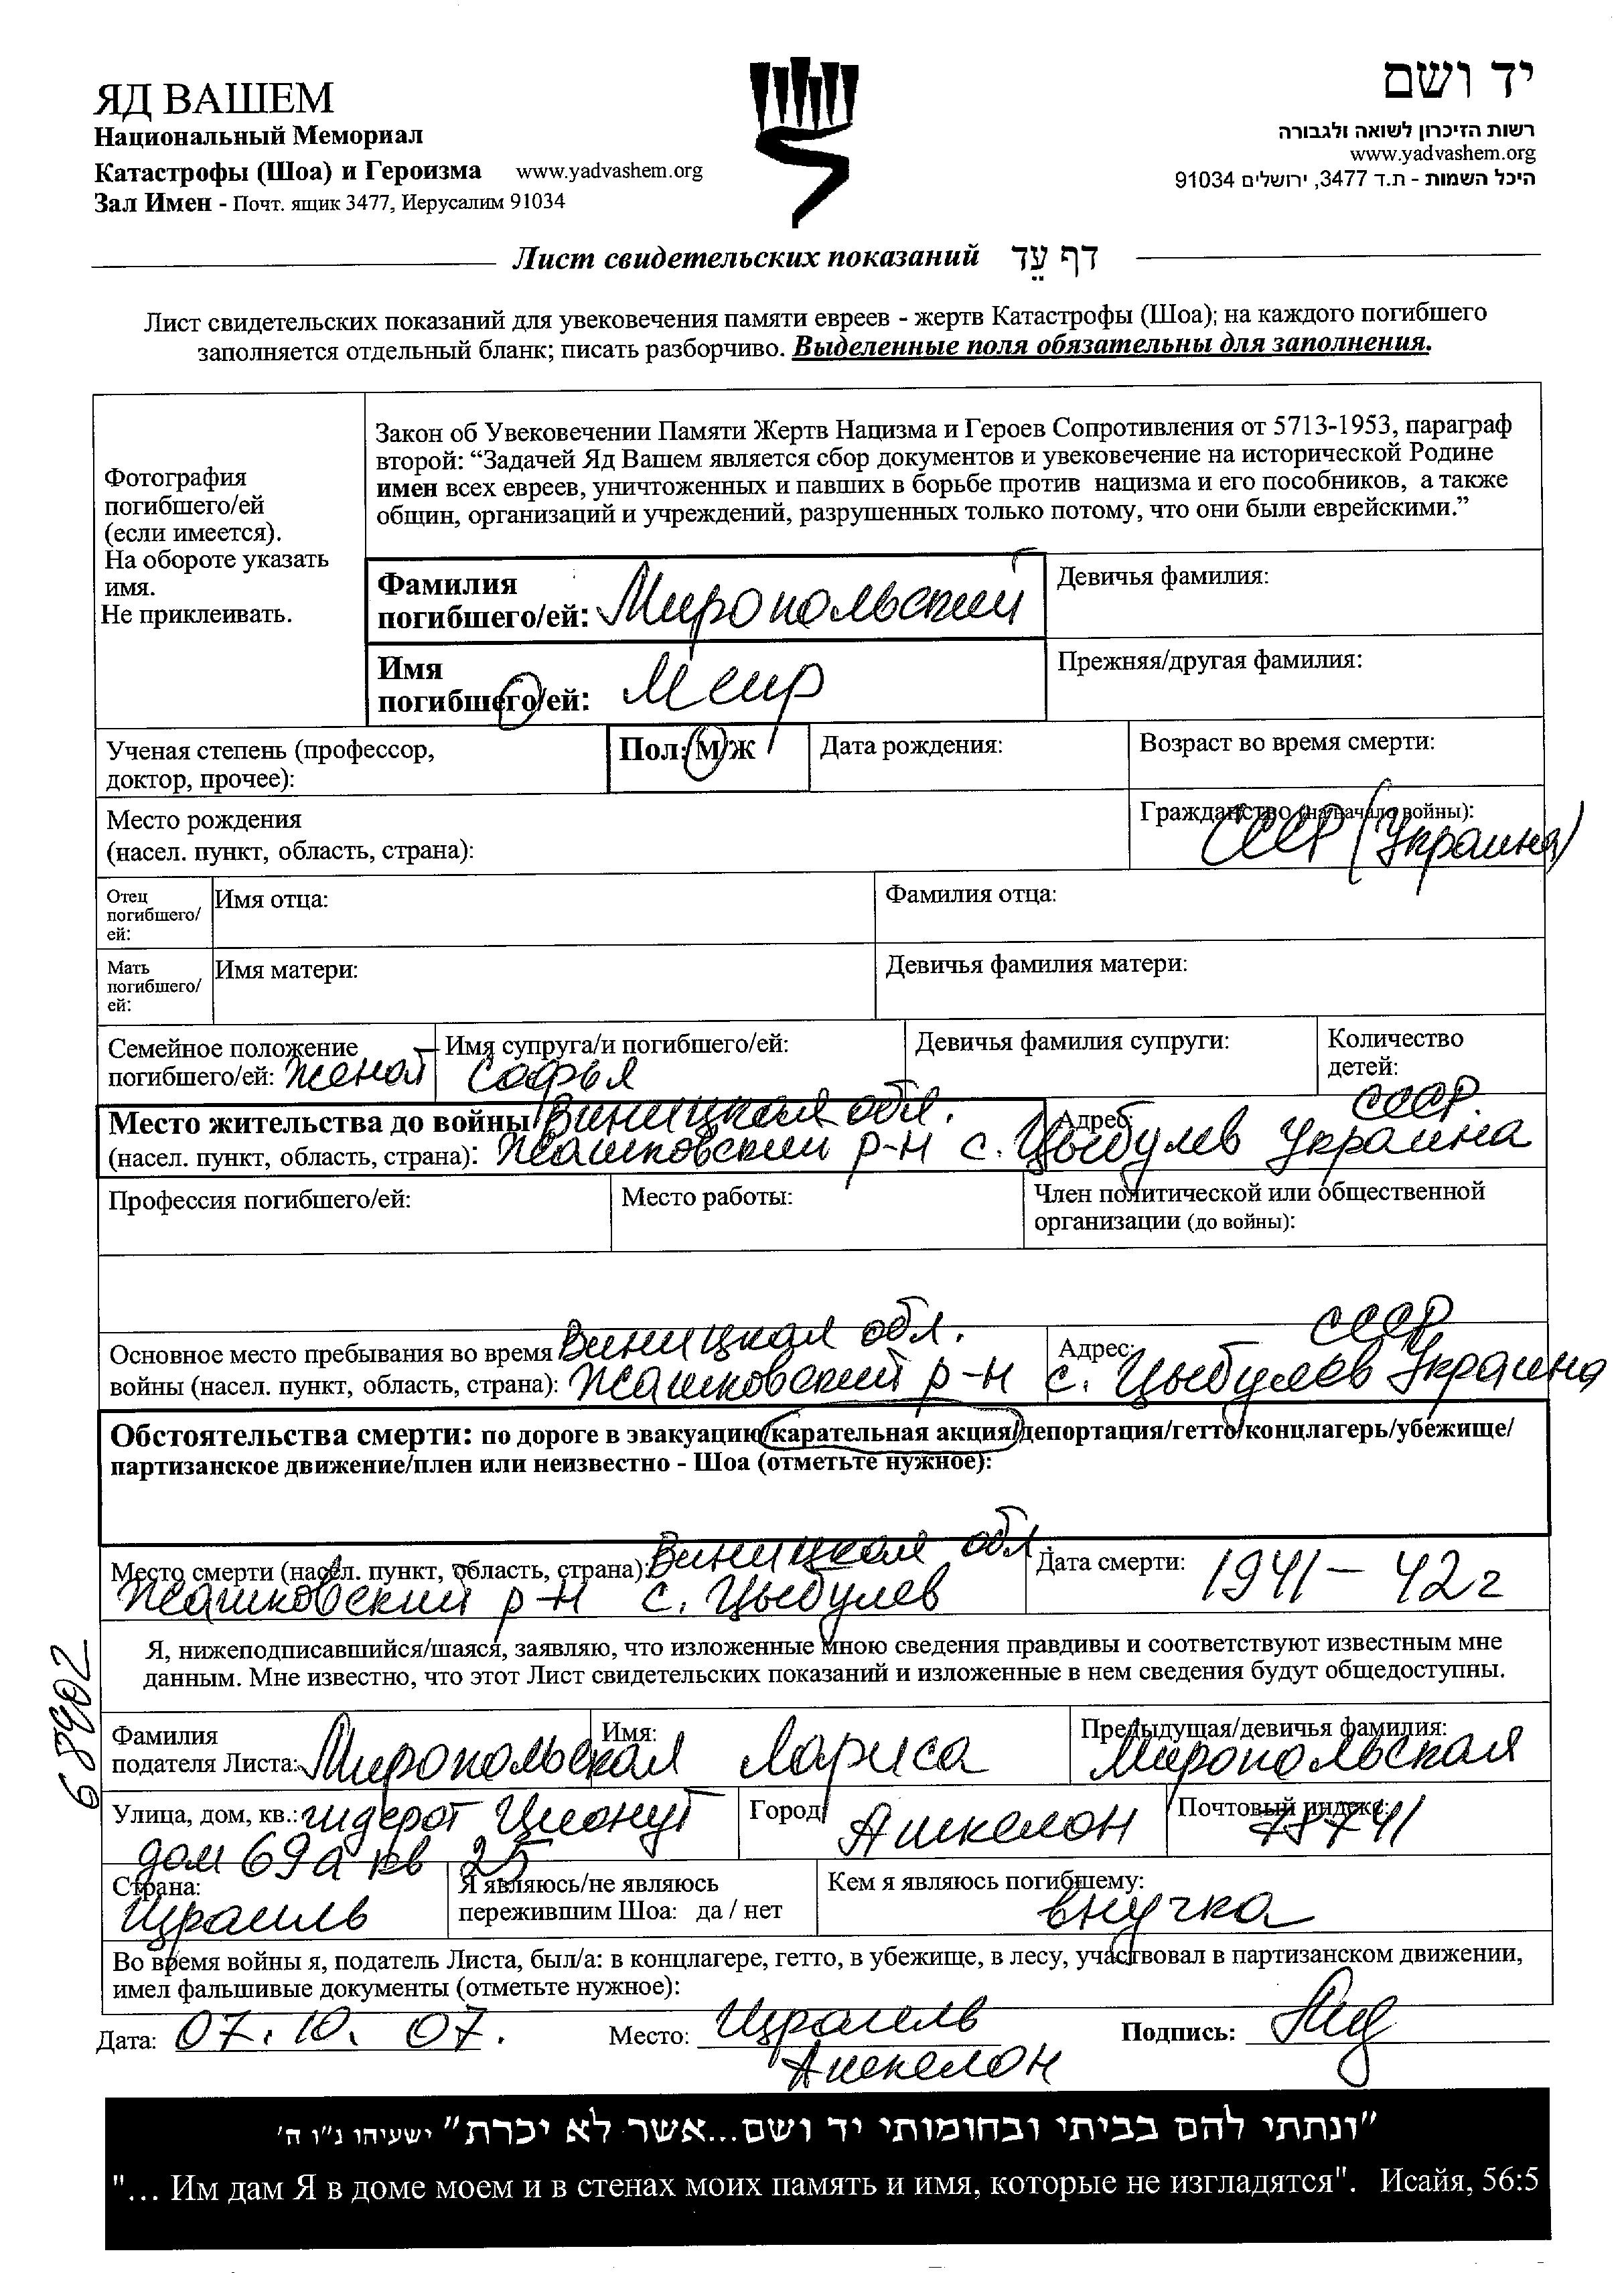 ЯД ВАШЕМ
Национальный Мемориал
Катастрофы (Шоа) и Героизма www.yadvashem.org
Зал Имен - Почт. ящик 3477, Иерусалим 91034
יד ושם
רשות הזיכרון לשואה ולגבורה
www.yadvashem.org
היכל השמות - ת.ד 3477, ירושלים 91034
Лист свидетельских показаний דף עֵד
Лист свидетельских показаний для увековечения памяти евреев - жертв Катастрофы (Шоа); на каждого погибшего
заполняется отдельный бланк; писать разборчиво. Выделенные поля обязательны для заполнения.
Фотография
погибшего/ей
(если имеется).
На обороте указать
имя.
Не приклеивать.
Закон об Увековечении Памяти Жертв Нацизма и Героев Сопротивления от 5713-1953, параграф
второй: “Задачей Яд Вашем является сбор документов и увековечение на исторической Родине
имен всех евреев, уничтоженных и павших в борьбе против нацизма и его пособников, а также
общин, организаций и учреждений, разрушенных только потому, что они были еврейскими.”
Фамилия
погибшего/ей: Миропольский
Девичья фамилия:
Имя
погибшего/ей: Меир
Прежняя/другая фамилия:
Ученая степень (профессор,
доктор, прочее):
Пол: М/Ж
Дата рождения:
Возраст во время смерти:
Место рождения
(насел. пункт, область, страна):
Гражданство (на начало войны):
СССР (Украина)
Отец
погибшего/
ей:
Имя отца:
Фамилия отца:
Мать
погибшего/
ей:
Имя матери:
Девичья фамилия матери:
Семейное положение
погибшего/ей: женат
Имя супруга/и погибшего/ей:
Софья
Девичья фамилия супруги:
Количество
детей:
Место жительства до войны Виницкая обл.
(насел. пункт, область, страна): Жашковский р-н с. Цыбулев
Адрес:
СССР.
Украина
Профессия погибшего/ей:
Место работы:
Член политической или общественной
организации (до войны):
Основное место пребывания во время Виницкая обл.
войны (насел. пункт, область, страна): Жашковский р-н
Адрес: СССР
с. Цыбулев Украина
Обстоятельства смерти: по дороге в эвакуацию/карательная акция/депортация/гетто/концлагерь/убежище/
партизанское движение/плен или неизвестно - Шоа (отметьте нужное):
Место смерти (насел. пункт, область, страна): Виницкая обл.
Жашковский р-н с. Цыбулев
Дата смерти: 1941 – 42 г
Я, нижеподписавшийся/шаяся, заявляю, что изложенные мною сведения правдивы и соответствуют известным мне
данным. Мне известно, что этот Лист свидетельских показаний и изложенные в нем сведения будут общедоступны.
Фамилия
податели Листа: Миропольская
Имя: Лариса
Предыдущая/девичья фамилия:
Миропольская
Улица, дом, кв.: шдерот Ционут
дом 69а кв 25
Город: Ашкелон
Почтовый индекс:
78741
Страна:
Израиль
Я являюсь/не являюсь
пережившим Шоа: да / нет
Кем я являюсь погибшему:
внучка
Во время войны я, податель Листа, был/а: в концлагере, гетто, в убежище, в лесу, участвовал в партизанском движении,
имел фальшивые документы (отметьте нужное):
Дата: 07. 10. 07.
Место: Израиль
Ашкелон
Подпись:
"ונתתי להם בביתי ובחומותי יד ושם...אשר לא יכרת" ישעיהו נ"ו ה'
"... Им дам Я в доме моем и в стенах моих память и имя, которые не изгладятся". Исайя, 56:5